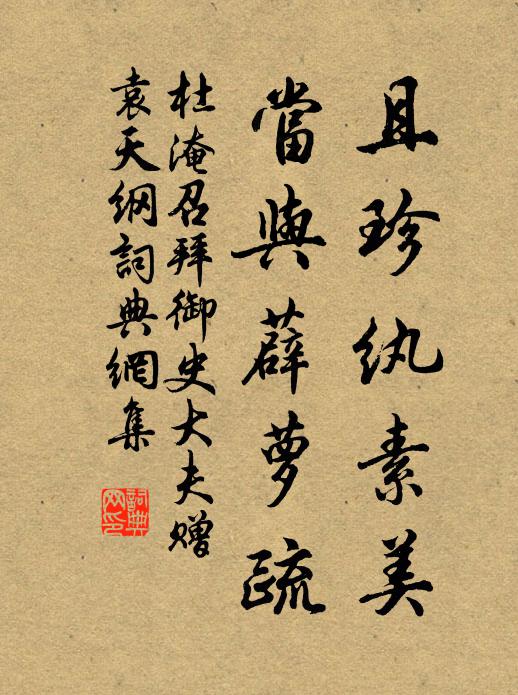 且珍纨素美
當與薜萝疏
杜淹召拜御史大夫赠
袁天纲詞典網集
詞典
网印